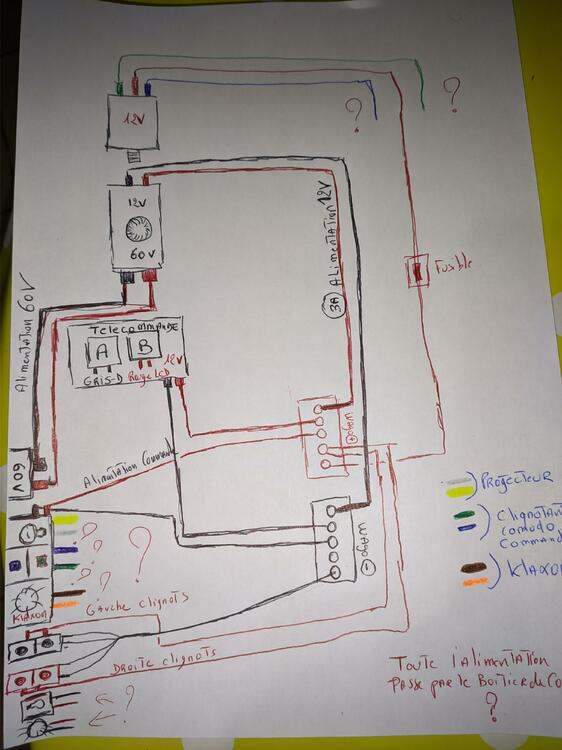 12V
?
?
12V
60V
Fusible
Alimentation 60V
3A Alimentation 12V
Telecommande
A B
12V
GRIS-D Rouge LCD
60V
Alimitation Command
WAgo +
WAgo -
PROJECTEUR
Clignotan
Comodo
Command
KlAxon
KlAxon
? ? ? ? ?
GAuche clignots
DROITE clignots
?
Toute l'alimentation
PAsse par le Boîtier de Co
?